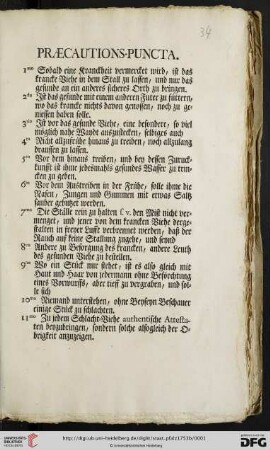 34
PRÆCAUTIONS-PUNCTA.
1mo Sobald eine Kranckheit vermerckt wird, ist das
krancke Viehe in dem Stall zu lassen, und nur das
gesunde an ein anderes sicheres Orth zu bringen.
2do Ist das gesunde mit einem anderen Futer zu füttern,
wo das krancke nichts davon genossen, noch zu ge-
niessen haben solle.
3tio Ist vor das gesunde Viehe, eine besondere, so viel
möglich nahe Wayde auszustecken, selbiges auch
4to Nicht allzufrühe hinaus zu treiben, noch allzulang
draussen zu lassen.
5to Vor dem hinaus treiben, und bey dessen Zuruck-
kunfft ist ihme jedesmahls gesundes Wasser zu trin-
cken zu geben.
6to Vor dem Austreiben in der Frühe, solle ihme die
Nasen, Zungen und Gummen mit etwas Saltz
sauber geputzet werden.
7mo Die Ställe rein zu halten den Mist nicht ver-
menget, und jener von dem krancken Viehe derge-
stalten in freyer Lufft verbrennet werden, daß der
Rauch auf keine Stallung zugehe, und seynd
8vo Andere zu Besorgung des krancken, andere Leuth
des gesunden Viehe zu bestellen.
9no Wo ein Stück umstehet, ist es also gleich mit
Haut und Haar von jedermann ohne Beförchtung
eines Vorwurffs, aber tieff zu vergraben, und sol-
le sich
10mo Niemand unterstehen, ohne Beyseyn Beschauer
einige Stück zu schlachten.
11mo Zu jedem Schlacht-Viehe authentische Attesta-
ten beyzubringen, sondern solche alsogleich der O-
brigkeit anzuzeigen.
http://digi.ub.uni-heidelberg.de/diglit/
© Universitätsbibliothek Heidelberg